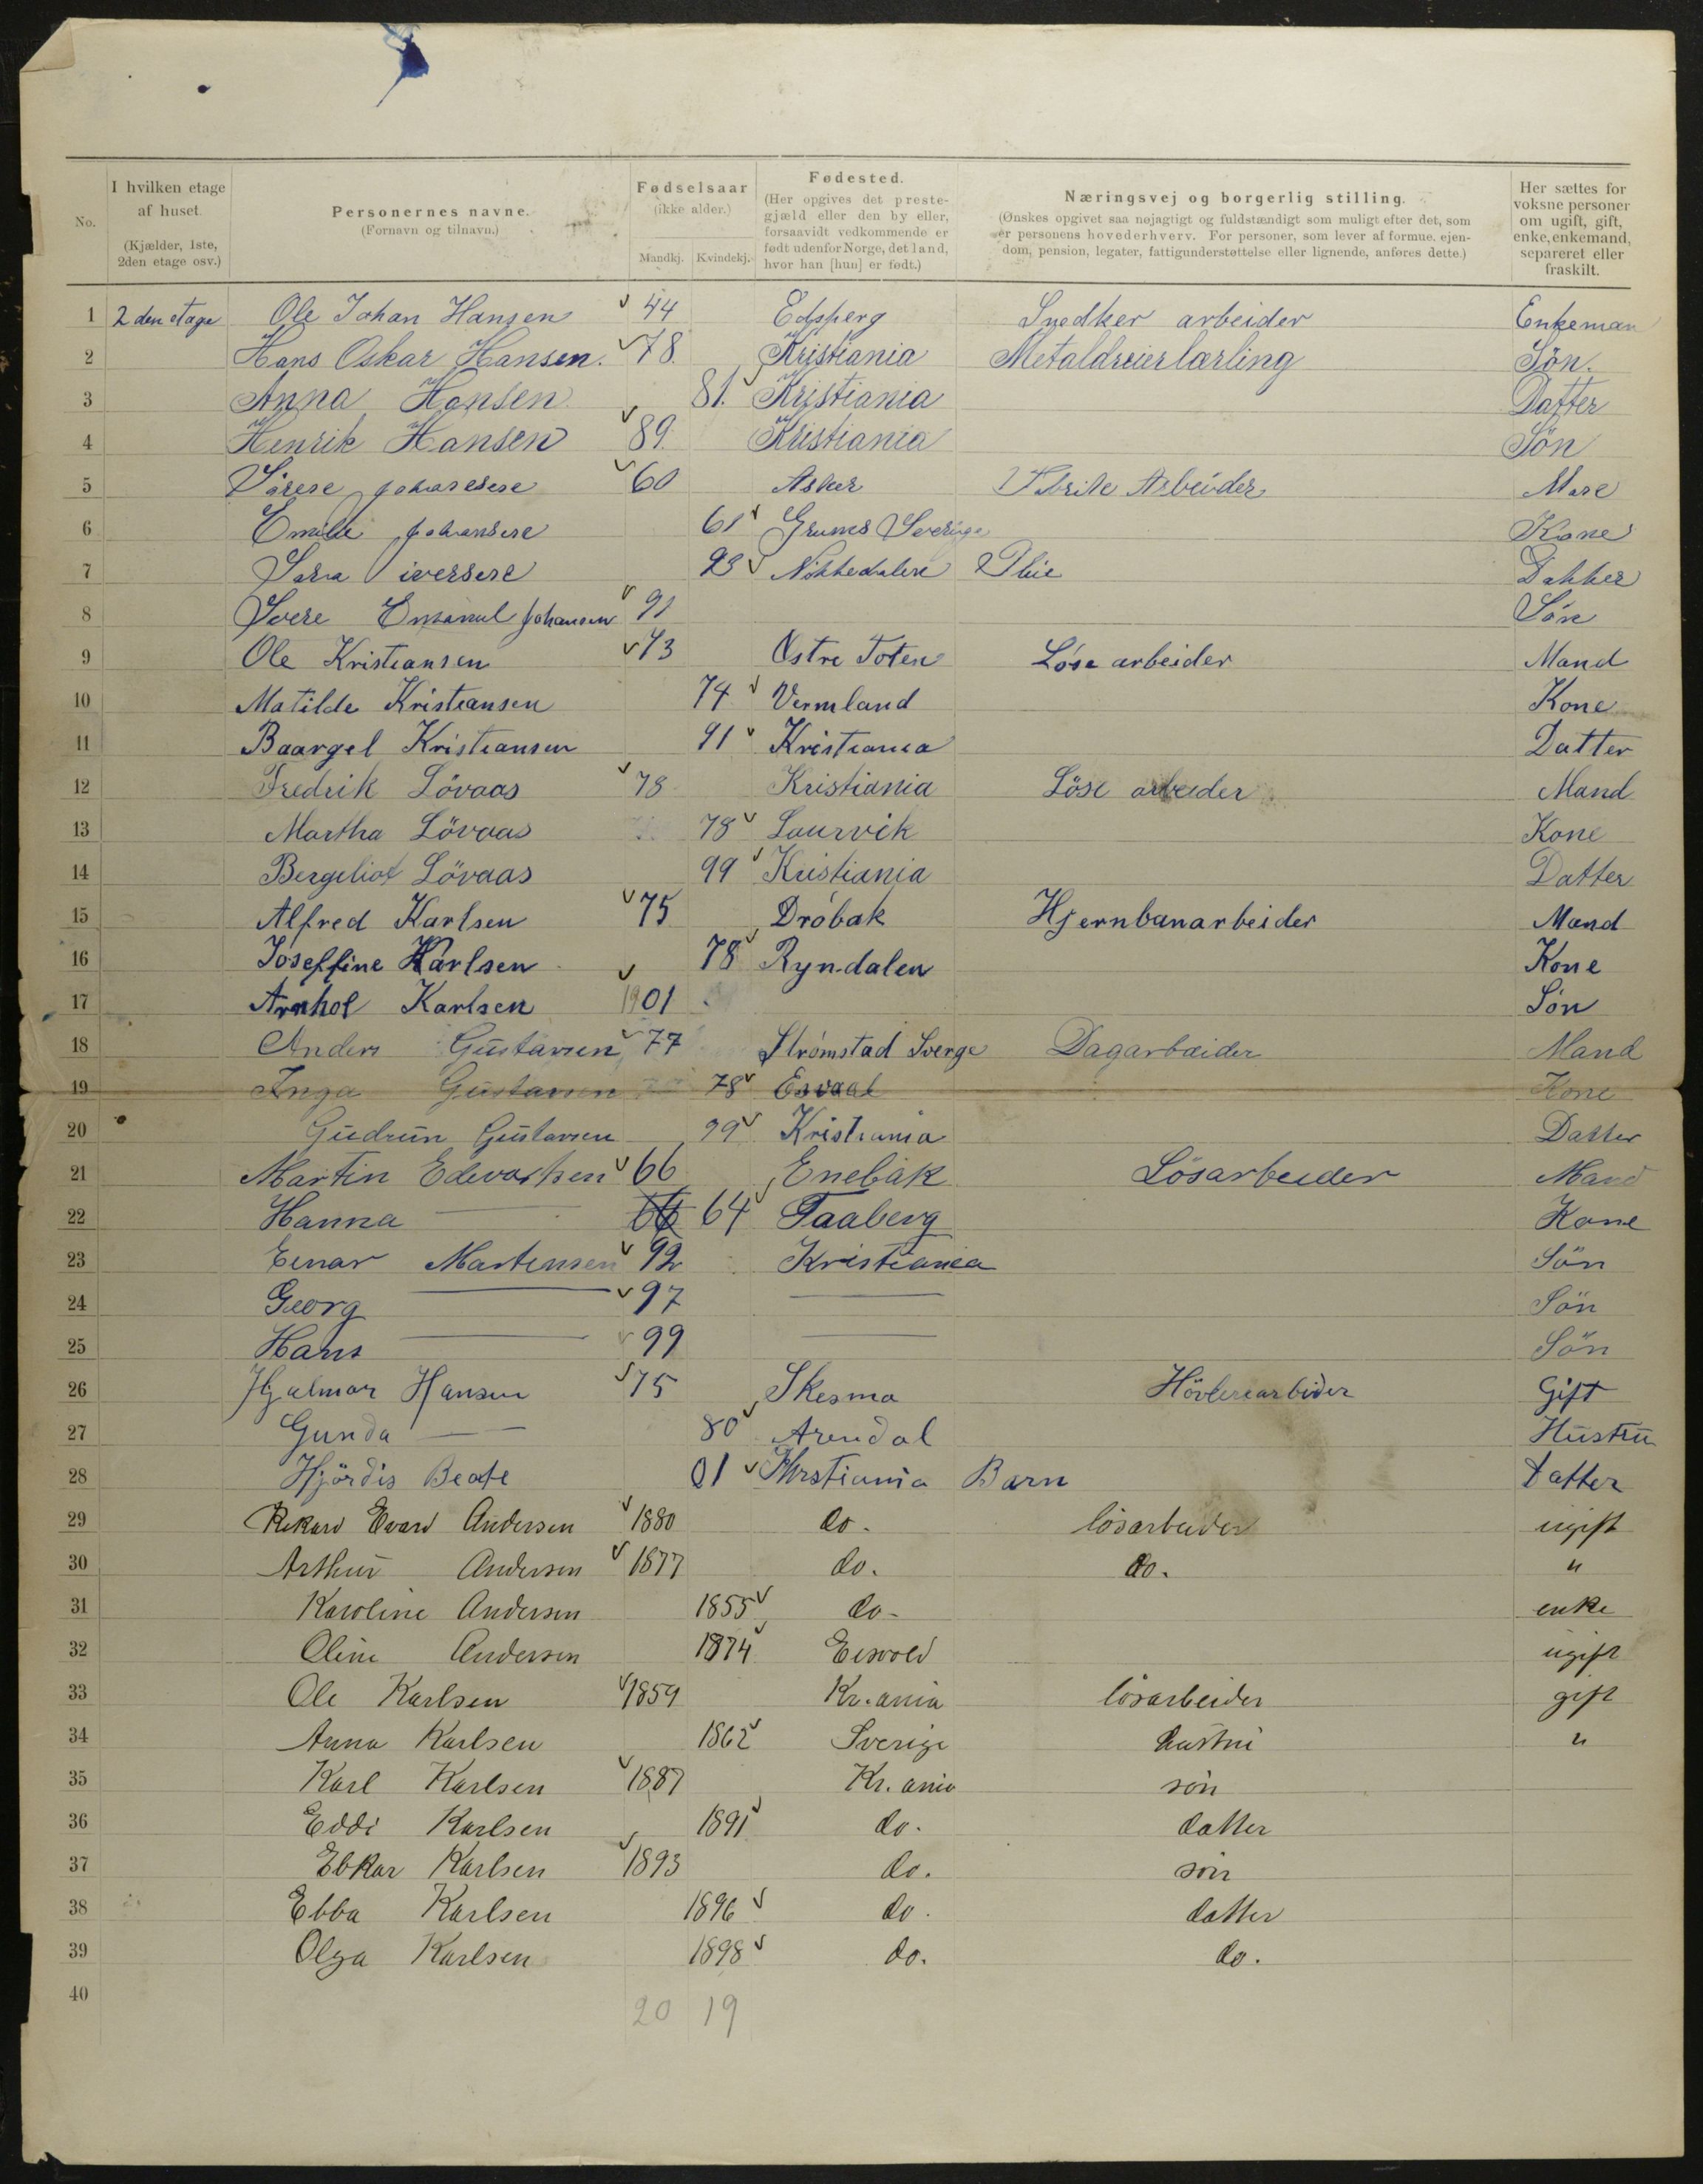 No.
I hvilken etage af huset. (Kjælder, 1ste, 2den etage osv.)
Personernes navne. (Fornavn og tilnavn.)
Fødselsaar (ikke alder.)
Mandkj. Kvindekj.
Fødested. (Her opgives det prestegjæld eller den by eller, forsaavidt vedkommende er født udenfor Norge, det land, hvor han [hun] er født.)
Næringsvej og borgerlig stilling. (Ønskes opgivet saa nøjagtigt og fuldstændigt som muligt efter det, som er personens hovederhverv. For personer, som lever af formue, ejendom, pension, legater, fattigunderstøttelse eller lignende, anføres dette.)
Her sættes for voksne personer om ugift, gift, enke, enkemand, separeret eller fraskilt.
1 2 den etage Ole Johan Hansen 44 Edsperg Snedker arbeider Enkeman
2 Hans Oskar Hansen. 78. Kristiania Metaldreierlærling Sön.
3 Anna Hansen 81. Kristiania Datter
4 Henrik Hansen 89. Kristiania Sön
5 60 Asker Arbeider
6 Emilie Johansen 61 Grums Sverige Kone
7 Sara iversen 93 Datter
8 Johansen 91 Sön
9 Ole Kristiansen 73 Østre Toten Løse arbeider Mand
10 Matilde Kristiansen 74 Vermland Kone
11 Baargel Kristiansen 91 Kristiania Datter
12 Fredrik Lövaas 78 Kristiania Löse arbeider Mand
13 Martha Lövaas 78 Laurvik Kone
14 Bergeliot Lövaas 99 Kristiania Datter
15 Alfred Karlsen 75 Dröbak Hjernbanarbeider Mand
16 Joseffine Karlsen 78 Ryndalen Kone
17 Arnhol Karlsen 1901 Sön
18 Anders Gustavsen 77 Strömstad Sverge Dagarbeider Mand
19 Inga Gustavsen 78 Kone
20 Gudrun Gustavsen 99 Kristiania Datter
21 Martin Edevartsen 66 Enebak Lösarbeider Mand
22 Hanna — 66 64 Faaberg Kone
23 Einar Martensen 92 Kristiania Sön
24 Georg — 97 — Sön
25 Hans — 99 — Sön
26 Hjalmar Hansen 75 Skesmo Hövleriarbeider Gift
27 Gunda — 80 Arendal Hustru
28 Hjördis Beate 01 Krstiania Barn Datter
29 Rikard Evard Andersen 1880 do. lösarbeider ugift
30 Arthur Andersen 1877 do. do. "
31 Karoline Andersen 1855 do. enke
32 Oline Andersen 1874 Eisvold ugift
33 Ole Karlsen 1859 Kr.ania lösarbeider gift
34 Anna Karlsen 1862 Sverige hustru "
35 Karl Karlsen 1887 Kr.ania sön
36 Eddi Karlsen 1891 do. datter
37 Ebkar Karlsen 1893 do. sön
38 Ebba Karlsen 1896 do. datter
39 Olga Karlsen 1898 do. do.
40
20 19